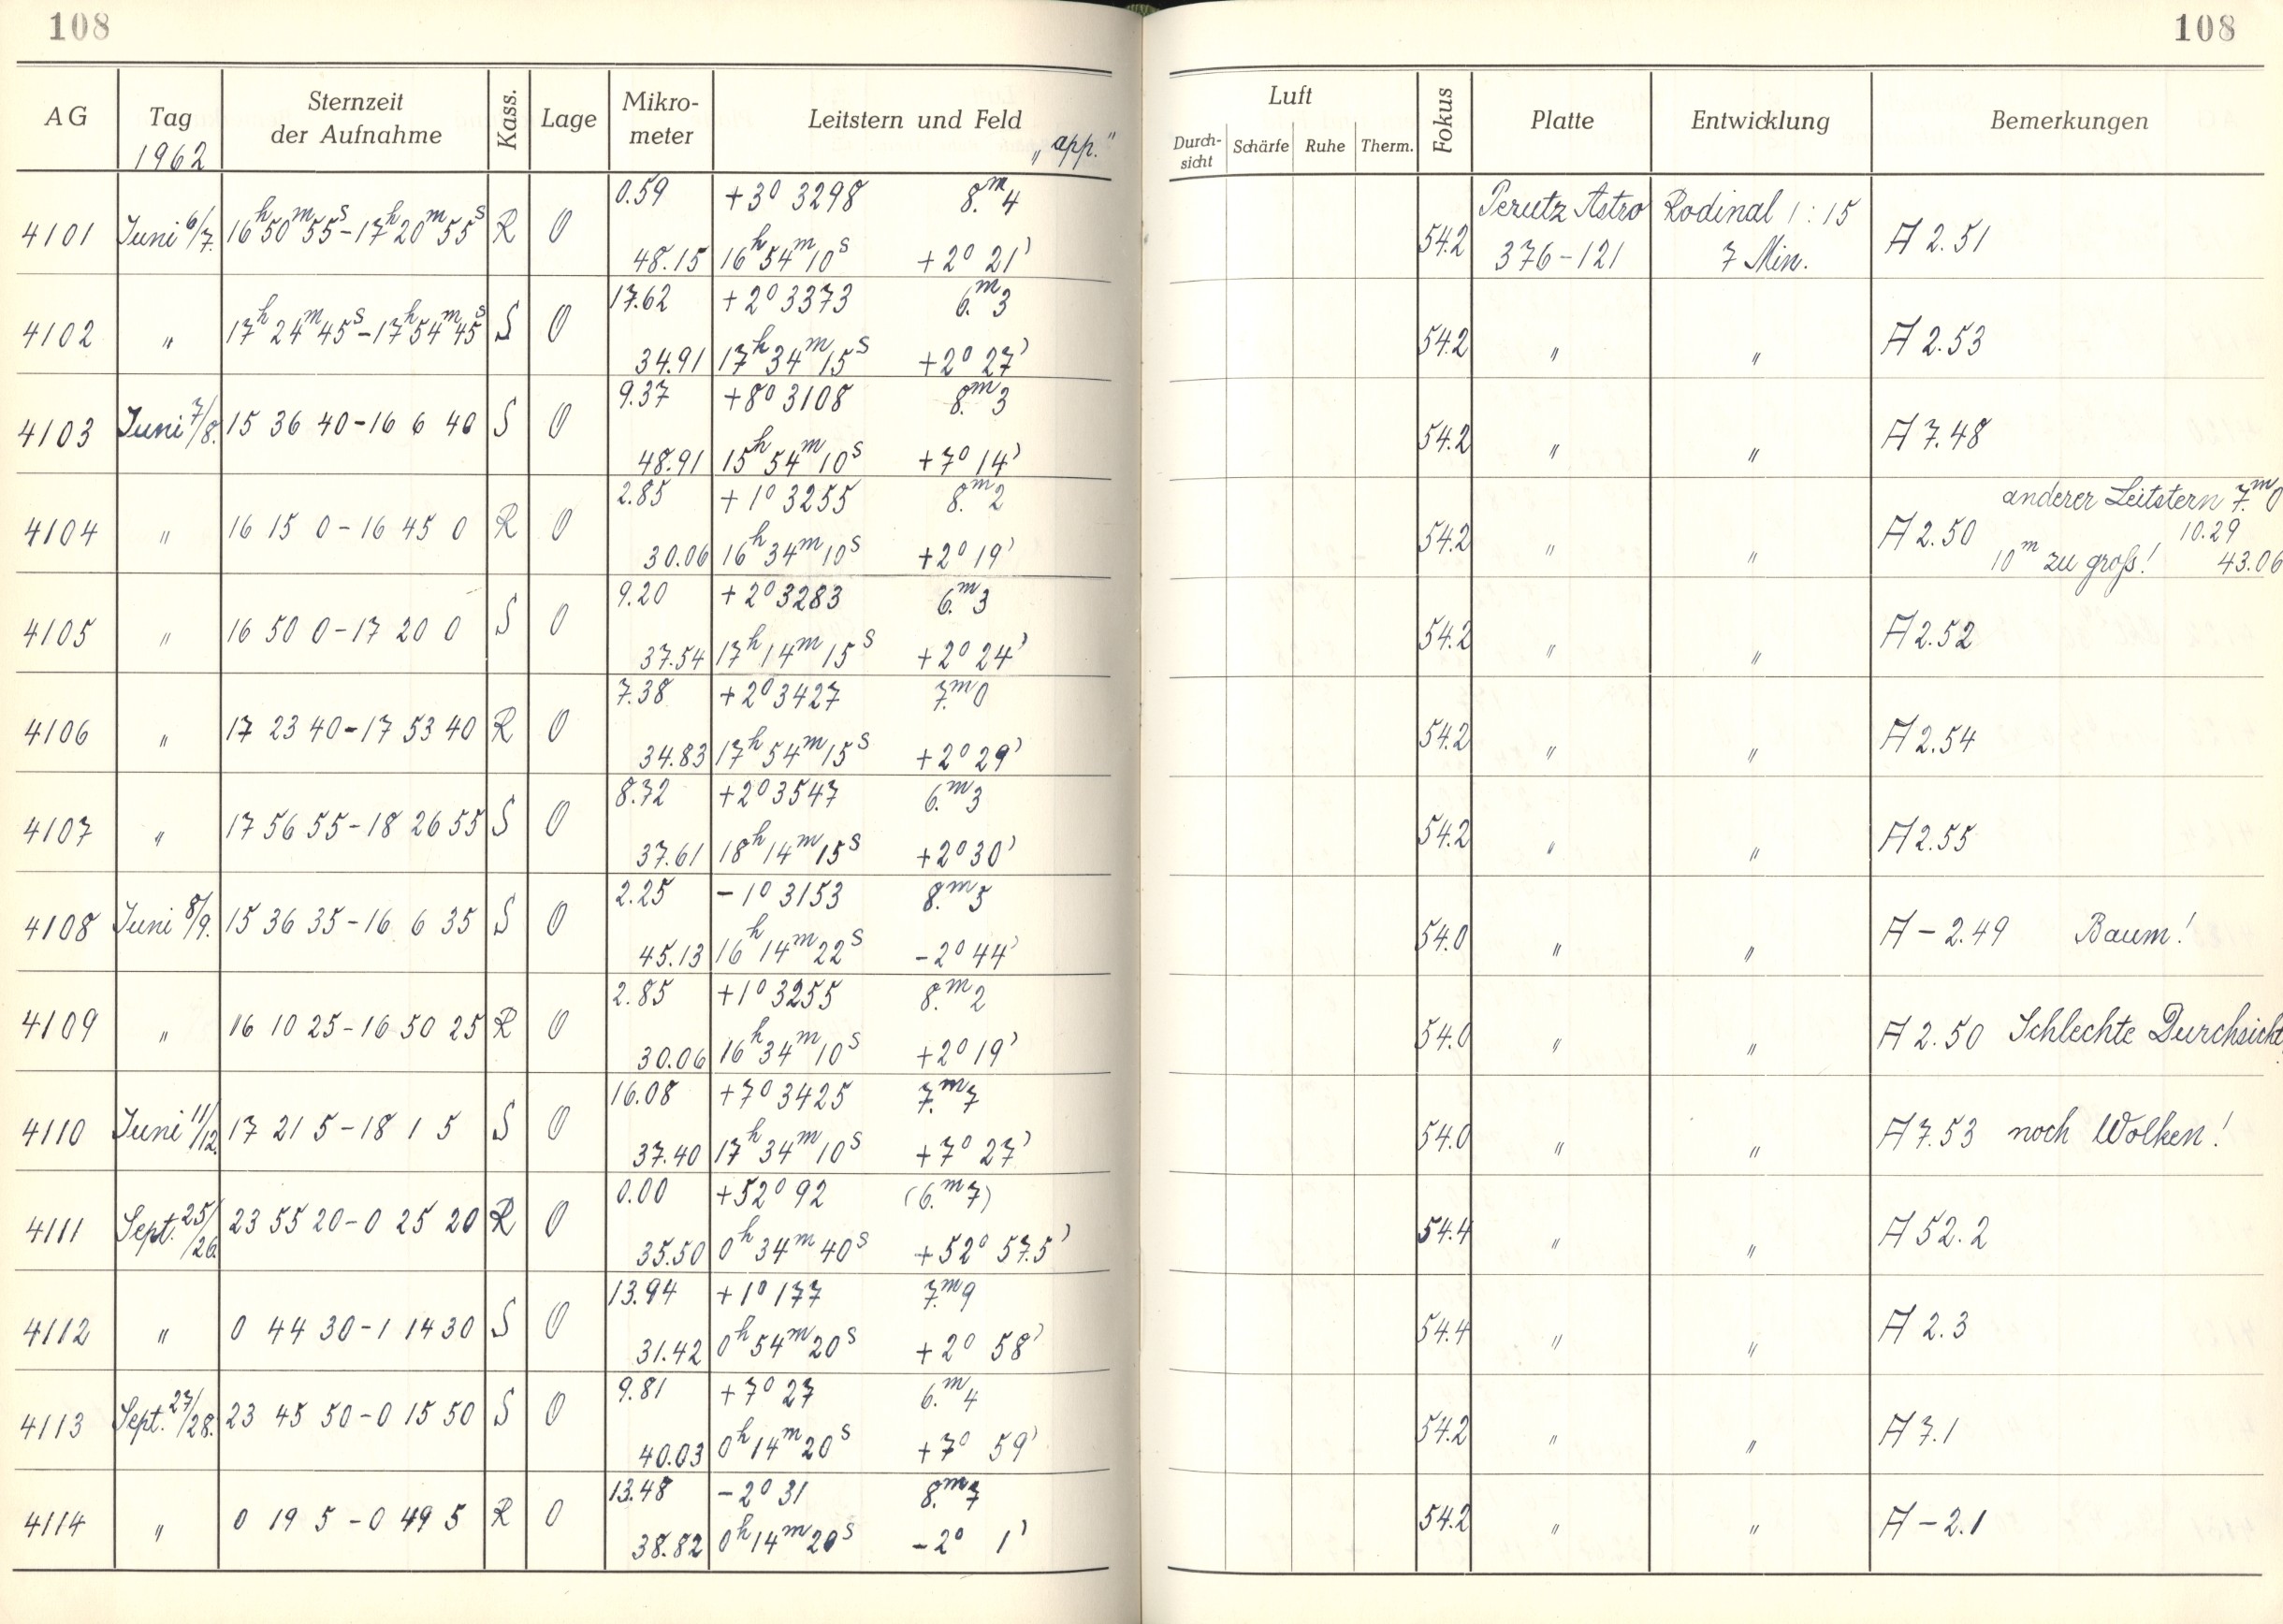 108 108
AG Tag 1962 Sternzeit der Aufnahme Kass. Lage Mikro-meter Leitstern und Feld „app.“ Luft Durch-sicht Schärfe Ruhe Therm. Fokus Platte Entwicklung Bemerkungen
4101 Juni 6/7. 16h50m55s–17h20m55s R O 0.59 +3° 3298 8.m4 54.2 Perutz Astro Rodinal 1:15 A 2.51
48.15 16h54m10s +2° 21' 376–121 7 Min.
4102 " 17h24m45s–17h54m45s S O 17.62 +2° 3373 6.m3 54.2 " " A 2.53
34.91 17h34m15s +2° 27'
4103 Juni 7/8. 15 36 40–16 6 40 S O 9.37 +8° 3108 8.m3 54.2 " " A 7.48
48.91 15h54m10s +7° 14'
4104 " 16 15 0–16 45 0 R O 2.85 +1° 3255 8.m2 54.2 " " A 2.50 anderer Leitstern 7.m0
10.29
30.06 16h34m10s +2° 19' 10m zu groß! 43.06
4105 " 16 50 0–17 20 0 S O 9.20 +2° 3283 6.m3 54.2 " " A 2.52
37.54 17h14m15s +2° 24'
4106 " 17 23 40–17 53 40 R O 7.38 +2° 3427 7.m0 54.2 " " A 2.54
34.83 17h54m15s +2° 29'
4107 " 17 56 55–18 26 55 S O 8.72 +2° 3547 6.m3 54.2 " " A 2.55
37.61 18h14m15s +2° 30'
4108 Juni 8/9. 15 36 35–16 6 35 S O 2.25 –1° 3153 8.m5 54.0 " " A –2.49 Baum!
45.13 16h14m22s –2° 44'
4109 " 16 10 25–16 50 25 R O 2.85 +1° 3255 8.m2 54.0 " " A 2.50 Schlechte Durchsicht
30.06 16h34m10s +2° 19'
4110 Juni 11/12. 17 21 5–18 1 5 S O 16.08 +7° 3425 7.m7 54.0 " " A 7.53 noch Wolken!
37.40 17h34m10s +7° 27'
4111 Sept. 25/26. 23 55 20–0 25 20 R O 0.00 +52° 92 (6.m7) 54.4 " " A 52.2
35.50 0h34m40s +52° 57.5'
4112 " 0 44 30–1 14 30 S O 13.94 +1° 177 7.m9 54.4 " " A 2.3
31.42 0h54m20s +2° 58'
4113 Sept. 27/28. 23 45 50–0 15 50 S O 9.81 +7° 27 6.m4 54.2 " " A 7.1
40.03 0h14m20s +7° 59'
4114 " 0 19 5–0 49 5 R O 13.48 –2° 31 8.m7 54.2 " " A –2.1
38.82 0h14m20s –2° 1'